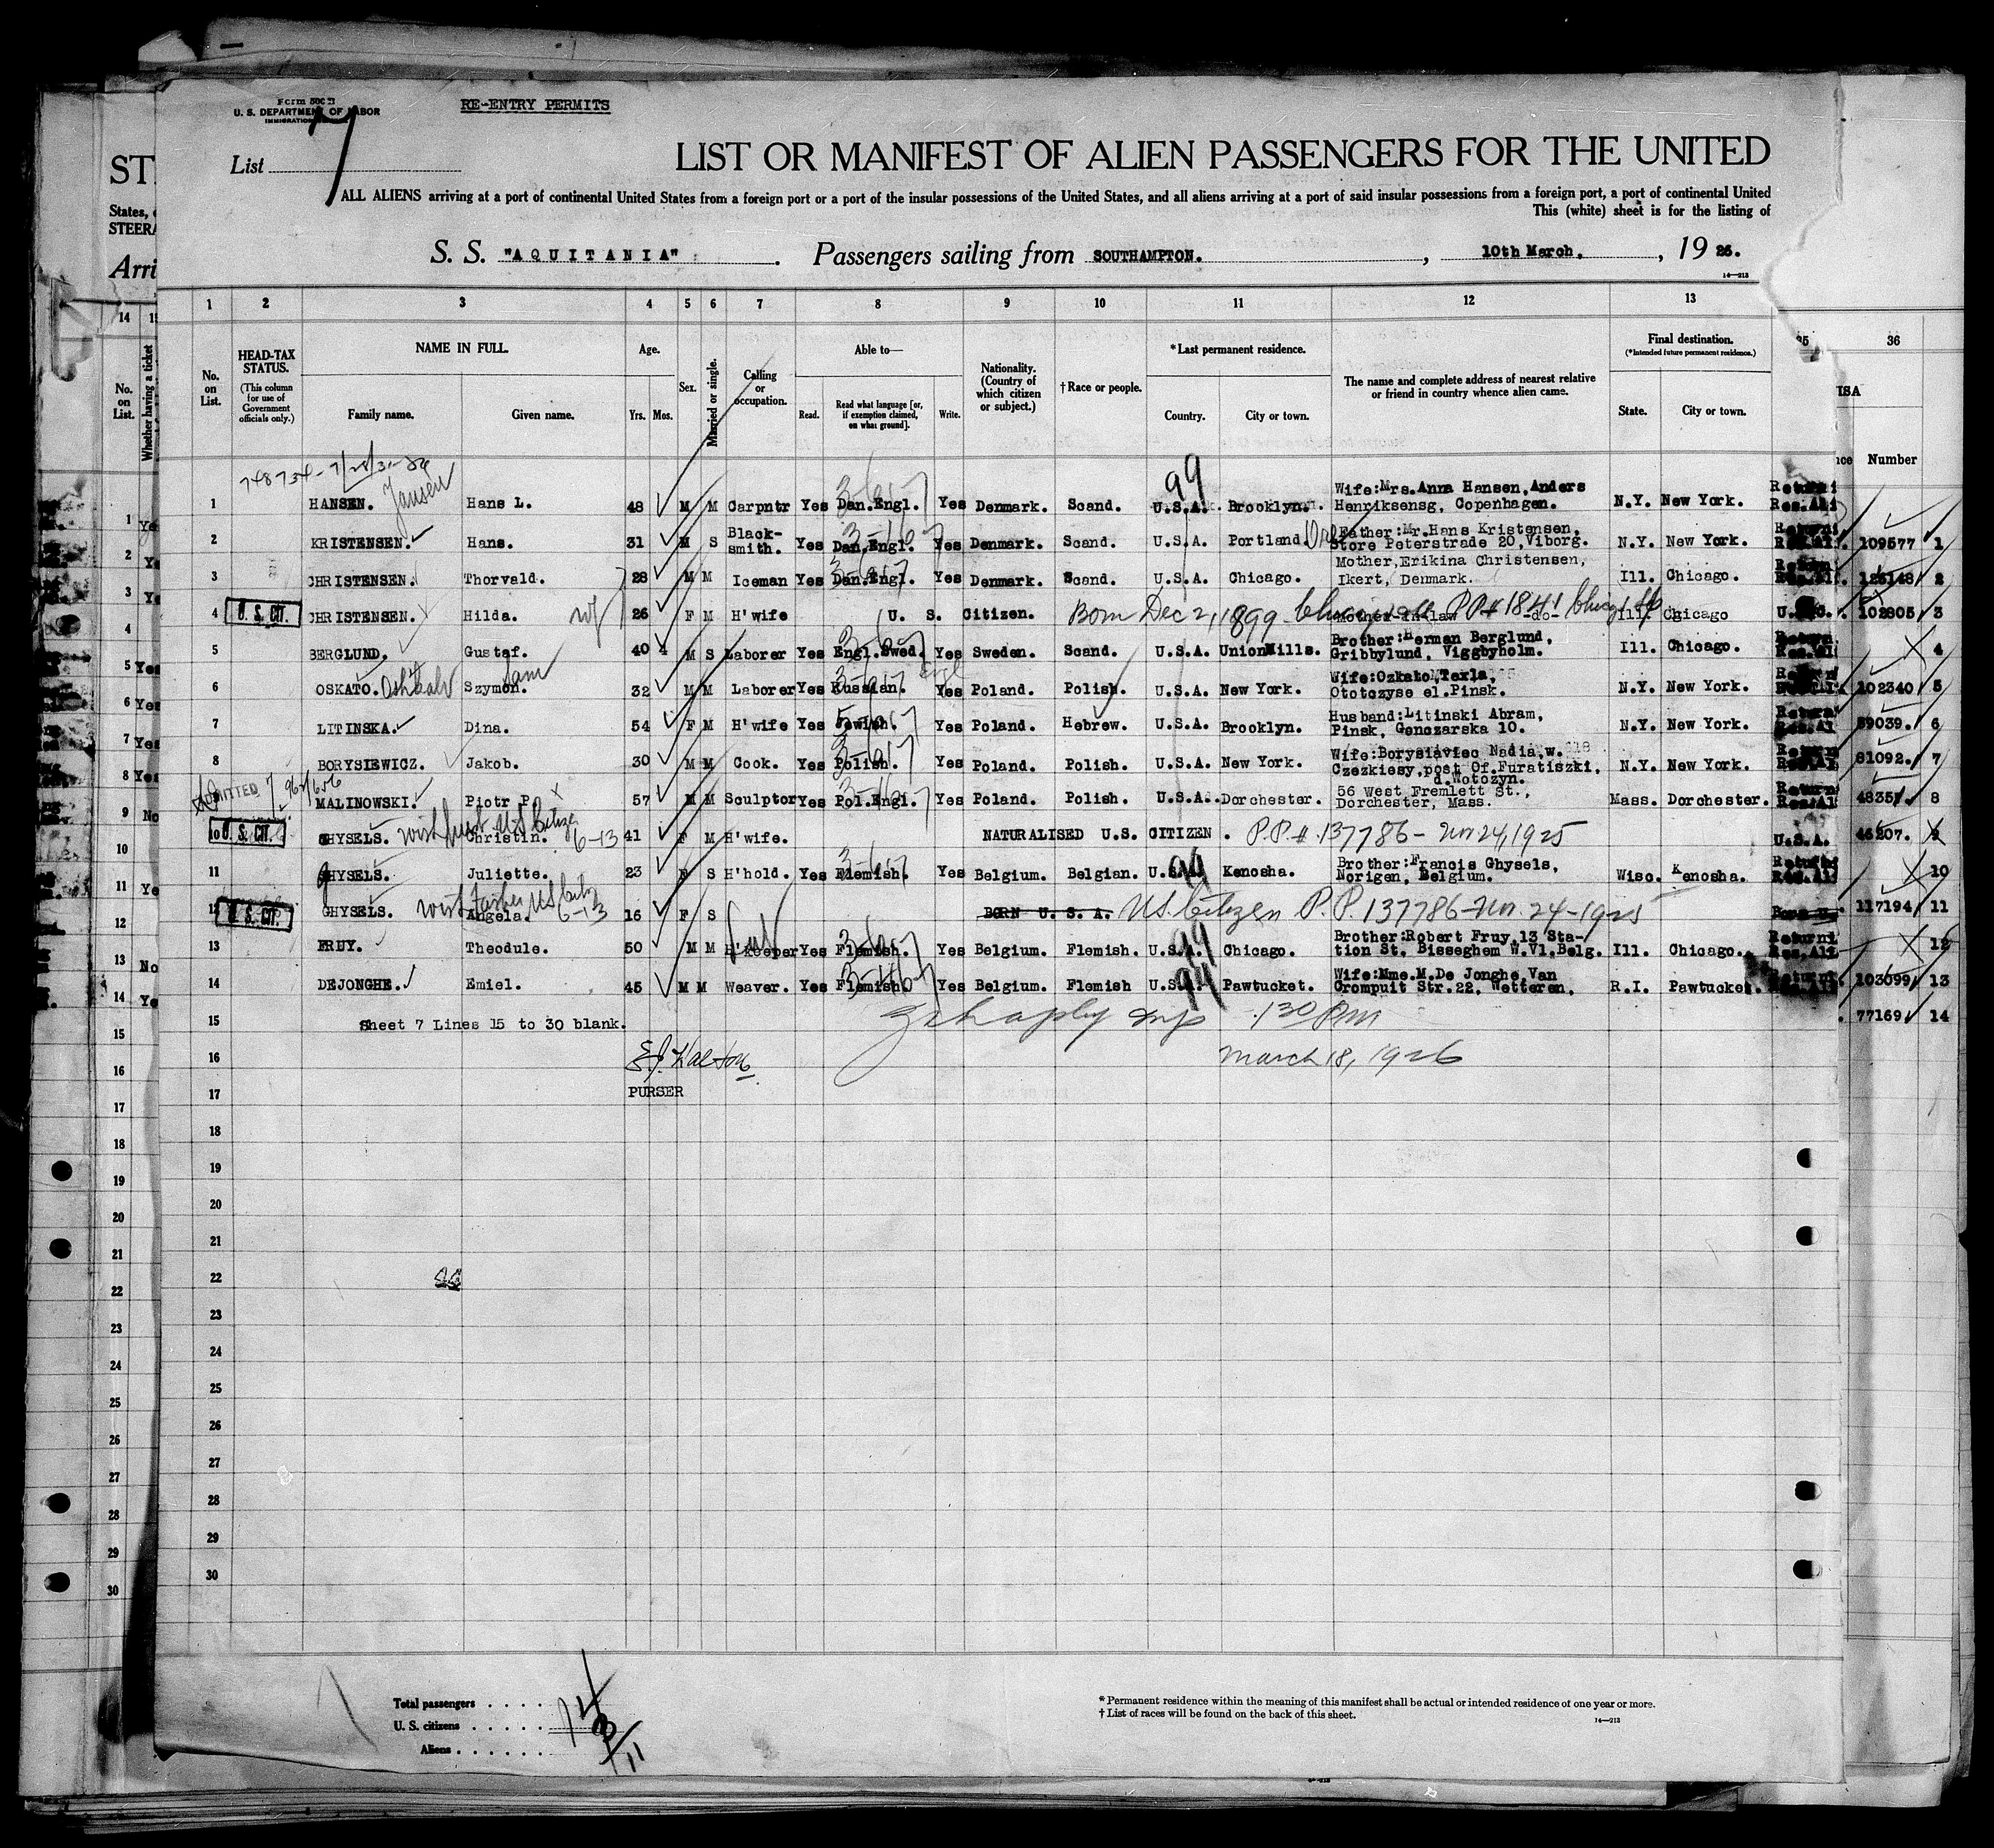 Form 500 B
U. S. DEPARTMENT OF LABOR
IMMIGRATION
RE-ENTRY PERMITS
List 7
ST
LIST OR MANIFEST OF ALIEN PASSENGERS FOR THE UNITED
ALL ALIENS arriving at a port of continental United States from a foreign port or a port of the insular possessions of the United States, and all aliens arriving at a port of said insular possessions from a foreign port, a port of continental United
States,
STEERA
This (white) sheet is for the listing of
Arri
S. S. "AQUITANIA" . Passengers sailing from SOUTHAMPTON. , 10th March, , 19 26.
14—213
14 1 2 3 4 5 6 7 8 9 10 11 12 13 35 36
No. on List.
Whether having a ticket
No. on List.
HEAD-TAX STATUS.
(This column for use of Government officials only.)
NAME IN FULL.
Family name. Given name.
Age.
Yrs. Mos.
Sex.
Married or single.
Calling or occupation.
Able to—
Read. Read what language [or, if exemption claimed, on what ground]. Write.
Nationality. (Country of which citizen or subject.)
†Race or people.
*Last permanent residence.
Country. City or town.
The name and complete address of nearest relative or friend in country whence alien came.
Final destination.
(*Intended future permanent residence.)
State. City or town.
ISA
Number
748734-7/28/31-
1 HANSEN. Jansen Hans L. 48 M M Carpntr Yes Dan.Engl. Yes Denmark. Scand. U.S.A. Brooklyn. Wife:Mrs.Anna Hansen,Anders Henriksensg, Copenhagen. N.Y. New York.
99
2 KRISTENSEN. Hans. 31 M S Black-smith. Yes Dan.Engl. Yes Denmark. Scand. U.S.A. Portland. Father:Mr.Hans Kristensen, Store Peterstrade 20,Viborg. N.Y. New York. 109577 1
3 CHRISTENSEN. Thorvald. 28 M M Iceman Yes Dan.Engl. Yes Denmark. Scand. U.S.A. Chicago. Mother,Erikina Christensen, Ikert, Denmark. Ill. Chicago. 126148 2
4 U. S. CIT. CHRISTENSEN. Hilda. 26 F M H'wife U. S. Citizen. Born Dec 2, 1899 Mother-in-law -do- Ill. Chicago 102805 3
5 BERGLUND. Gustaf. 40 M S Laborer Yes Engl.Swed. Yes Sweden. Scand. U.S.A. Union Mills. Brother:Herman Berglund, Gribbylund, Viggbyholm. Ill. Chicago. 4
6 OSKATO. Szymon. Sam 32 M M Laborer Yes Russian. Yes Poland. Polish. U.S.A. New York. Wife:Ozkato,Texla, Ototczyse el.Pinsk. N.Y. New York. 102340 5
7 LITINSKA. Dina. 54 F M H'wife Yes Jewish. Yes Poland. Hebrew. U.S.A. Brooklyn. Husband:Litinski Abram, Pinsk, Gonczarska 10. N.Y. New York. 89039. 6
8 BORYSIEWICZ. Jakob. 30 M M Cook. Yes Polish. Yes Poland. Polish. U.S.A. New York. Wife:Borysiaviec Nadia,w. Czezkiesy,post Of.Furatiszki, d.Wotozyn. N.Y. New York. 81092. 7
ADMITTED
9 MALINOWSKI. Piotr P. 57 M M Sculptor Yes Pol.Engl. Yes Poland. Polish. U.S.A. Dorchester. 56 West Fremlett St., Dorchester, Mass. Mass. Dorchester. 8
10 U. S. CIT. GHYSELS. Christin. 6-13 41 F M H'wife. NATURALISED U.S. CITIZEN. P.P.# 137786 - Nov 24, 1925 U.S.A. 46207. 9
11 GHYSELS. Juliette. 23 F S H'hold. Yes Flemish. Yes Belgium. Belgian. U.S.A. Kenosha. Brother:Francis Ghysels, Norigen, Belgium. Wisc. Kenosha. 10
12 U. S. CIT. GHYSELS. Angela. 6-13 16 F S BORN U.S.A. U.S. Citizen P.P. 137786-Nov. 24-1925 117194 11
13 FRUY. Theodule. 50 M M H'keeper Yes Flemish. Yes Belgium. Flemish. U.S.A. Chicago. Brother:Robert Fruy,13 Station St, Bisseghem W.Vl.Belg. Ill. Chicago. 12
14 DEJONGHE. Emiel. 45 M M Weaver. Yes Flemish. Yes Belgium. Flemish U.S.A. Pawtucket. Wife:Mme.M.De Jonghe,Van Crompuit Str.22, Wetteren. R.I. Pawtucket. 103099 13
15 Sheet 7 Lines 15 to 30 blank. 1 30 PM 77169 14
16 March 18, 1926
PURSER
17
18
19
20
21
22
23
24
25
26
27
28
29
30
Total passengers . . . . 14
U. S. citizens . . . . . 3
Aliens . . . . . . 11
* Permanent residence within the meaning of this manifest shall be actual or intended residence of one year or more.
† List of races will be found on the back of this sheet.
14—213